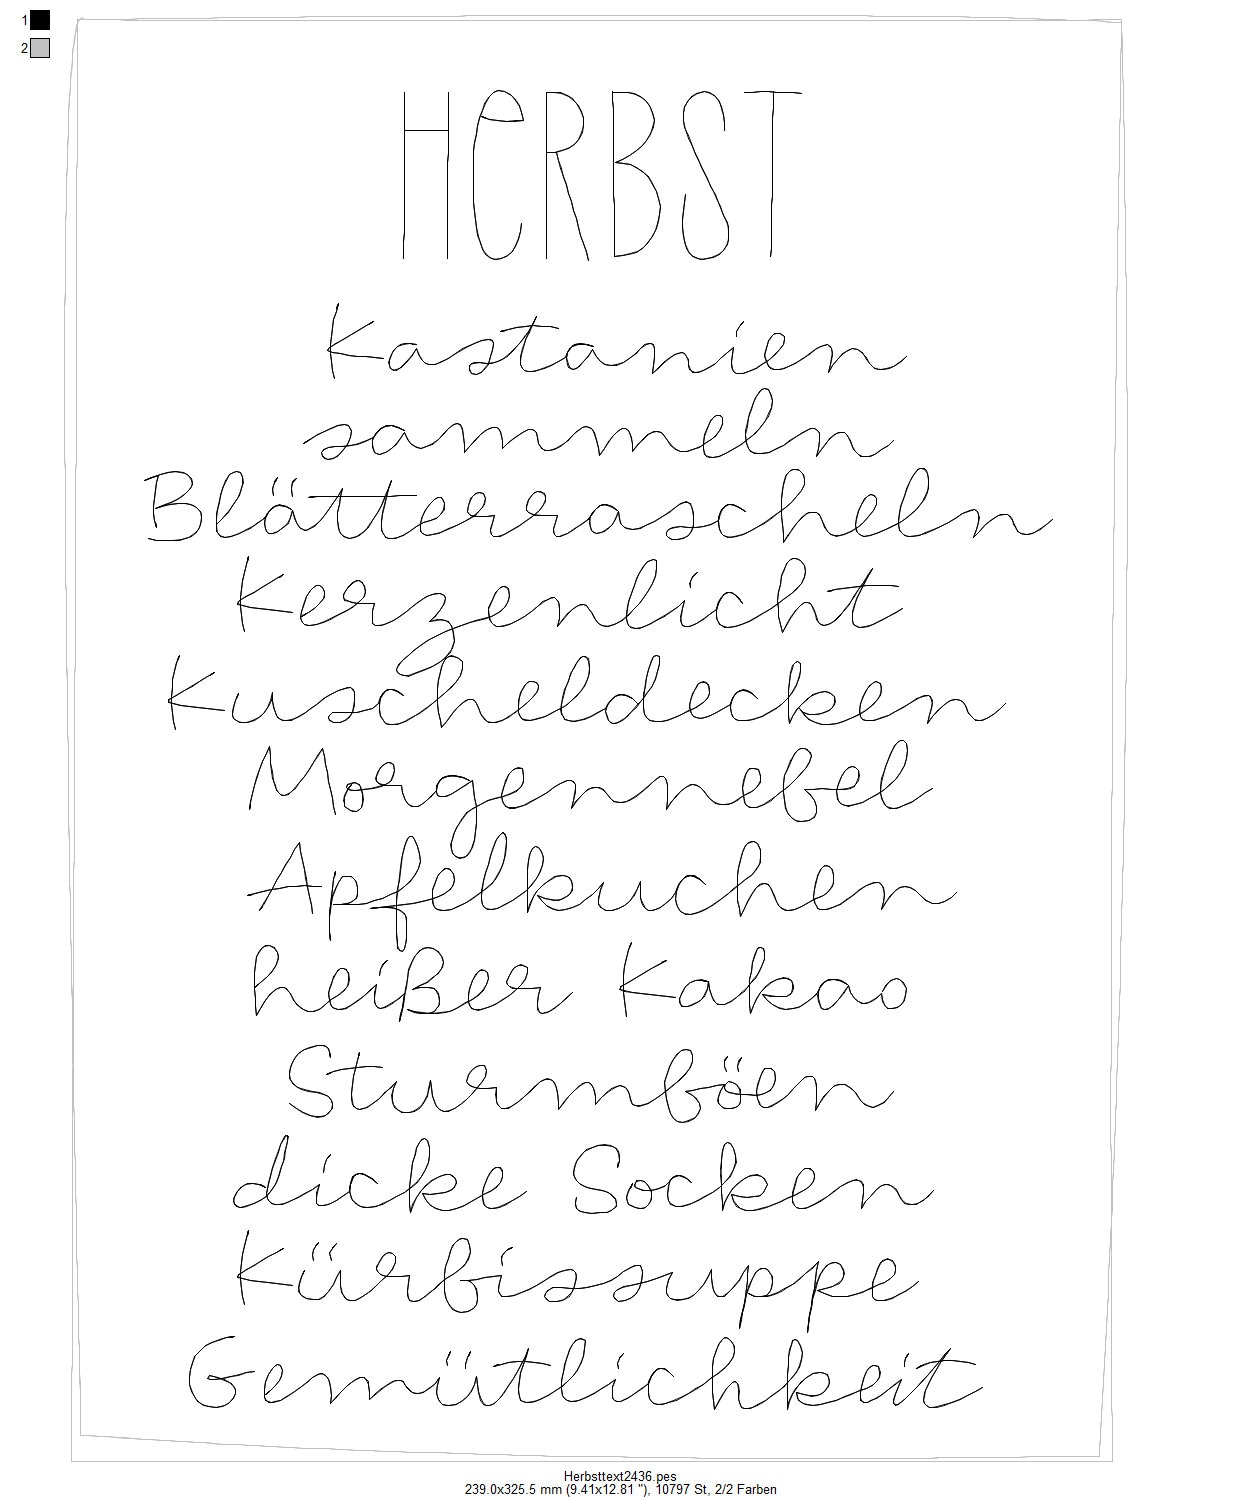 1
2
HERBST
Kastanien
sammeln
Blätterrascheln
Kerzenlicht
Kuscheldecken
Morgennebel
Apfelkuchen
heißer Kakao
Sturmböen
dicke Socken
Kürbissuppe
Gemütlichkeit
Herbsttext2436.pes
239.0x325.5 mm (9.41x12.81 "), 10797 St, 2/2 Farben